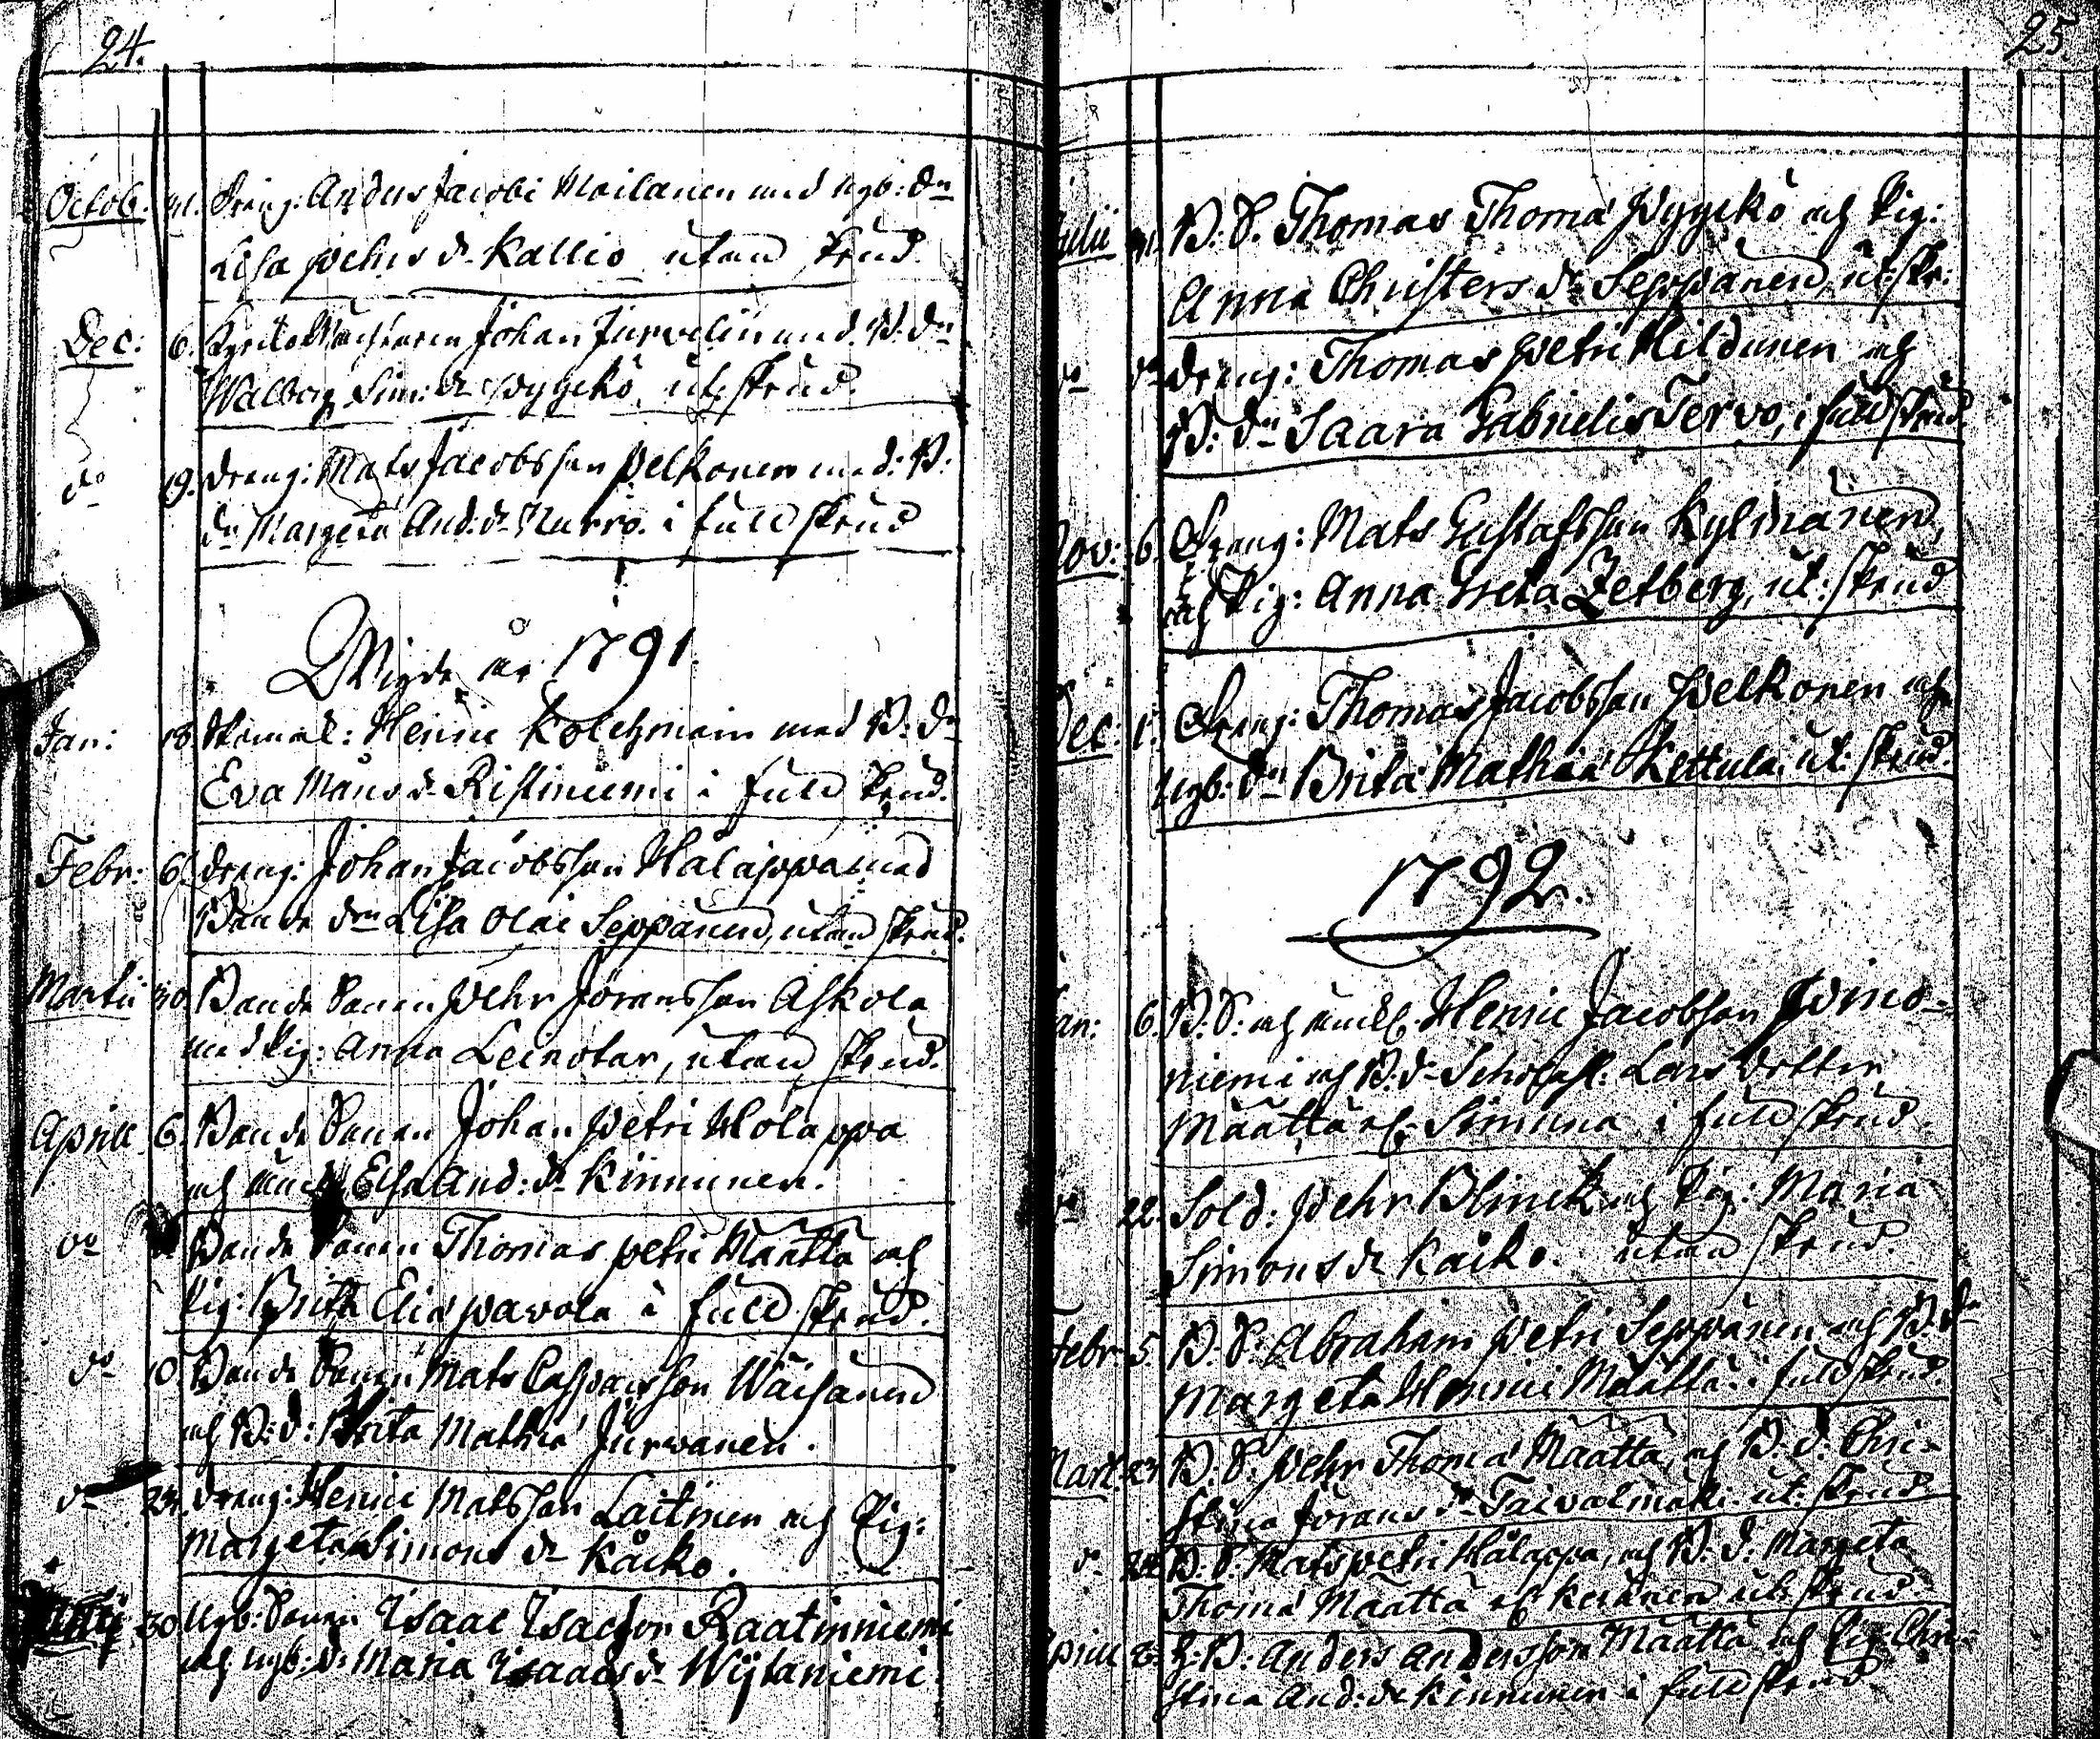 24.
Octob. 31. Dreng: Anders Jacobi Moilanen med Ngb: dn
Lisa Pehrs dr Kallio utan skrud.
Dec: 6. Johan Jurvelin med B: dn
Walborg Sim: dr Pyykkö, ut. skrud.
do 19. Dreng: Mats Jacobsson Pelkonen med B:
dn Margeta And: dr Nurro. i full skrud
Wigde år 1791.
Jan: 18. Henric Kolehmain med B: dn
Eva Måns dr Ristiniemi i full skrud.
Febr: 6. Dreng: Johan Jacobsson Hålappa med
Bonde dn Lisa Olai Seppänen, utan skrud.
Martii 30. Bonde Sonen Pehr Jöransson Askola
med Pig: Anna Leinotar, utan skrud.
Aprill 6. Bonde Sonen Johan Petri Holappa
och Enck. Elsa And: dr Kinnunen.
do Bonde Sonen Thomas Petri Määttä och
Pig: Brita Eliæ Pavola i full skrud.
do 10. Bonde Sonen Mats Casparsson Wäisänen
och B: d: Brita Mathiæ Jurvanen.
do 24. Dreng: Henric Matsson Laitinen och Pig:
Margeta Simons dr Kåcko.
30. Ngb: Sonen Isaac Isacson Raatinniemi
och Ngb: d: Maria Isaacs dr Wijtaniemi.
25
Julii 31. B: S. Thomas Thomæ Pyykkö och Pig:
Anna Christers dr Seppänen, ut: skr:
do do Dreng: Thomas Petri Mildunen och
B: dn Saara Gabrielis Tervo, i full skrud
Nov: 6. Dreng: Mats Gustafsson Kylmänen,
och Pig: Anna Greta Zetberg, ut: skrud
Dec: 1. Dreng: Thomas Jacobsson Pelkonen och
Ngb: dn Brita Mathiæ Kettula, ut: skrud.
1792.
Jan: 6. B: S: och Enckl. Henric Jacobsson Pimo-
niemi och B: d: Scholast: Lars Dotter
Määttä el. Simuna i full skrud.
do 22. Sold: Pehr Blinck och Pig: Maria
Simons dr Kåcko. utan skrud.
Febr 5. B: S: Abraham Petri Seppänen och B: dn
Margeta Henrici Määttä i full skrud.
Mart. 23. B: S: Pehr Thomæ Määttä, och B: d: Chri-
stina Jörans dr Taivalmäki ut: skrud
do 24. B: S: Mats Petri Hålappa, och B: d: Margeta
Thomæ Määttä el. Keränen ut: skrud
Aprill 8. B: Anders Andersson Määttä och Pig: Chri-
stina And: dr Kinnunen i full skrud